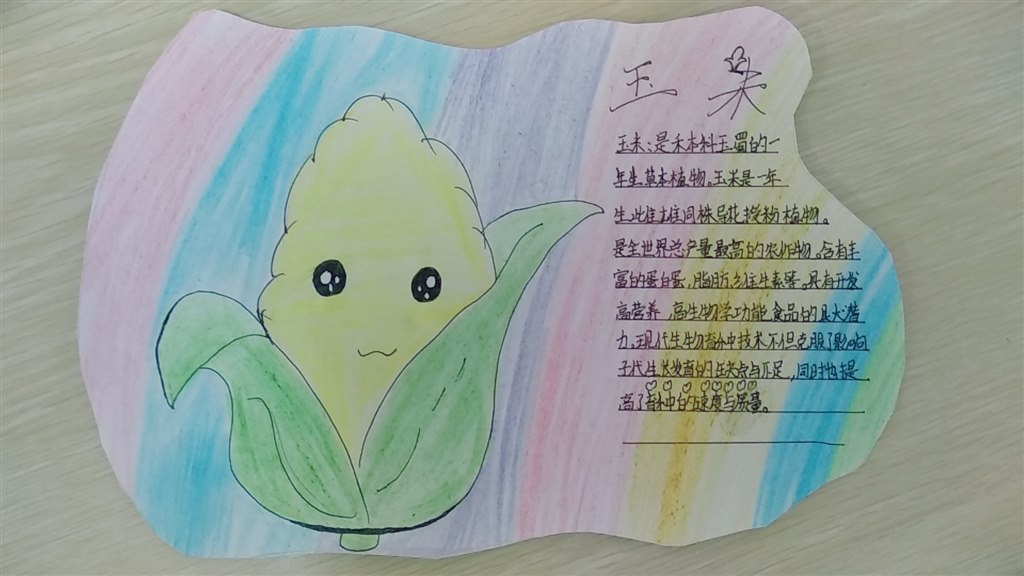 玉米
玉米：是禾本科玉蜀的一
年生草本植物。玉米是一年
生雌雄同株异花授粉植物。
是全世界总产量最高的农作物。含有丰
富的蛋白蛋，脂肪，维生素等。具有开发
高营养，高生物学功能食品的具大潜
力，现代生物育种技术不但克服了
子代生长发育的缺点与不足，同时也提
高了育种的速度与质量。